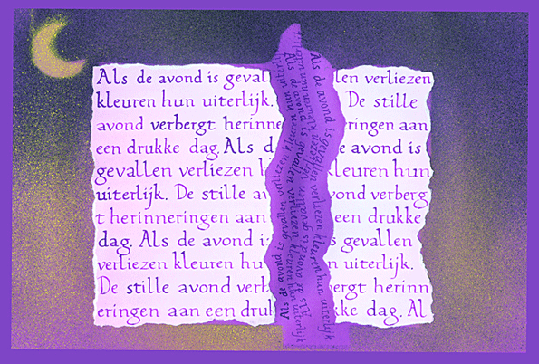 Als de avond is geval len verliezen
kleuren hun uiterlijk. De stille
avond verbergt herinne ringen aan
een drukke dag. Als d e avond is
gevallen verliezen k leuren hun
uiterlijk. De stille av ond verberg
t herinneringen aan een drukke
dag. Als de avond i s gevallen
verliezen kleuren hu n uiterlijk.
De stille avond verb ergt herinn
eringen aan een druk ke dag. Al
Als de avond is gevallen verliezen kleuren hun uiterlijk